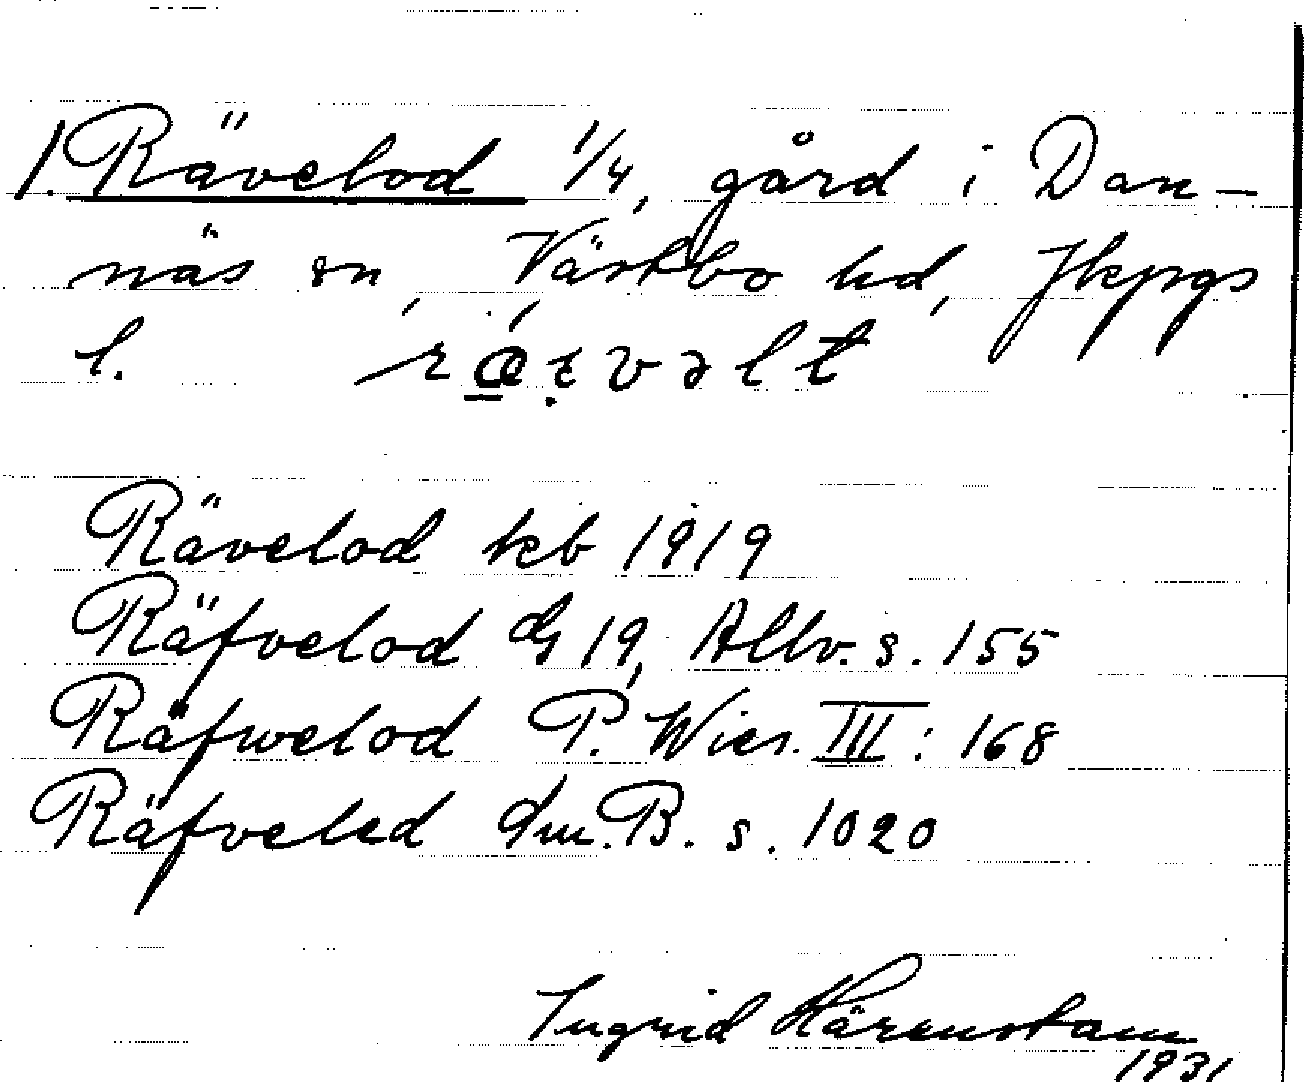 1. Rävelod 1/4, gård i Dan-
näs sn, Västbo hd, Jkpgs
l.
Rävelod kb 1919
Räfvelod dg 19, Allv. s. 155
Räfwelod P. Wies. III: 168
Räfveled Sm. B. s. 1020
Ingrid Härenstam
1931